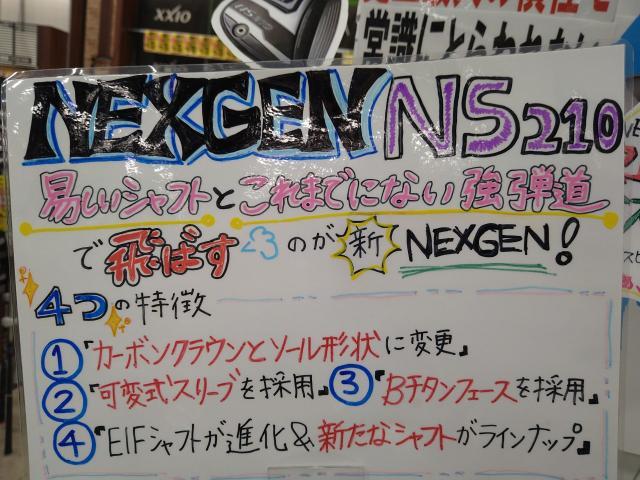 XX10
常識にとらわれない
NEXGEN NS210
易しいシャフトとこれまでにない強弾道
で飛ばすのが新NEXGEN!
4つの特徴
①「カーボンクラウンとソール形状に変更」
②「可変式スリーブを採用」③「Bチタンフェースを採用」
④「EIFシャフトが進化&新たなシャフトがラインナップ」